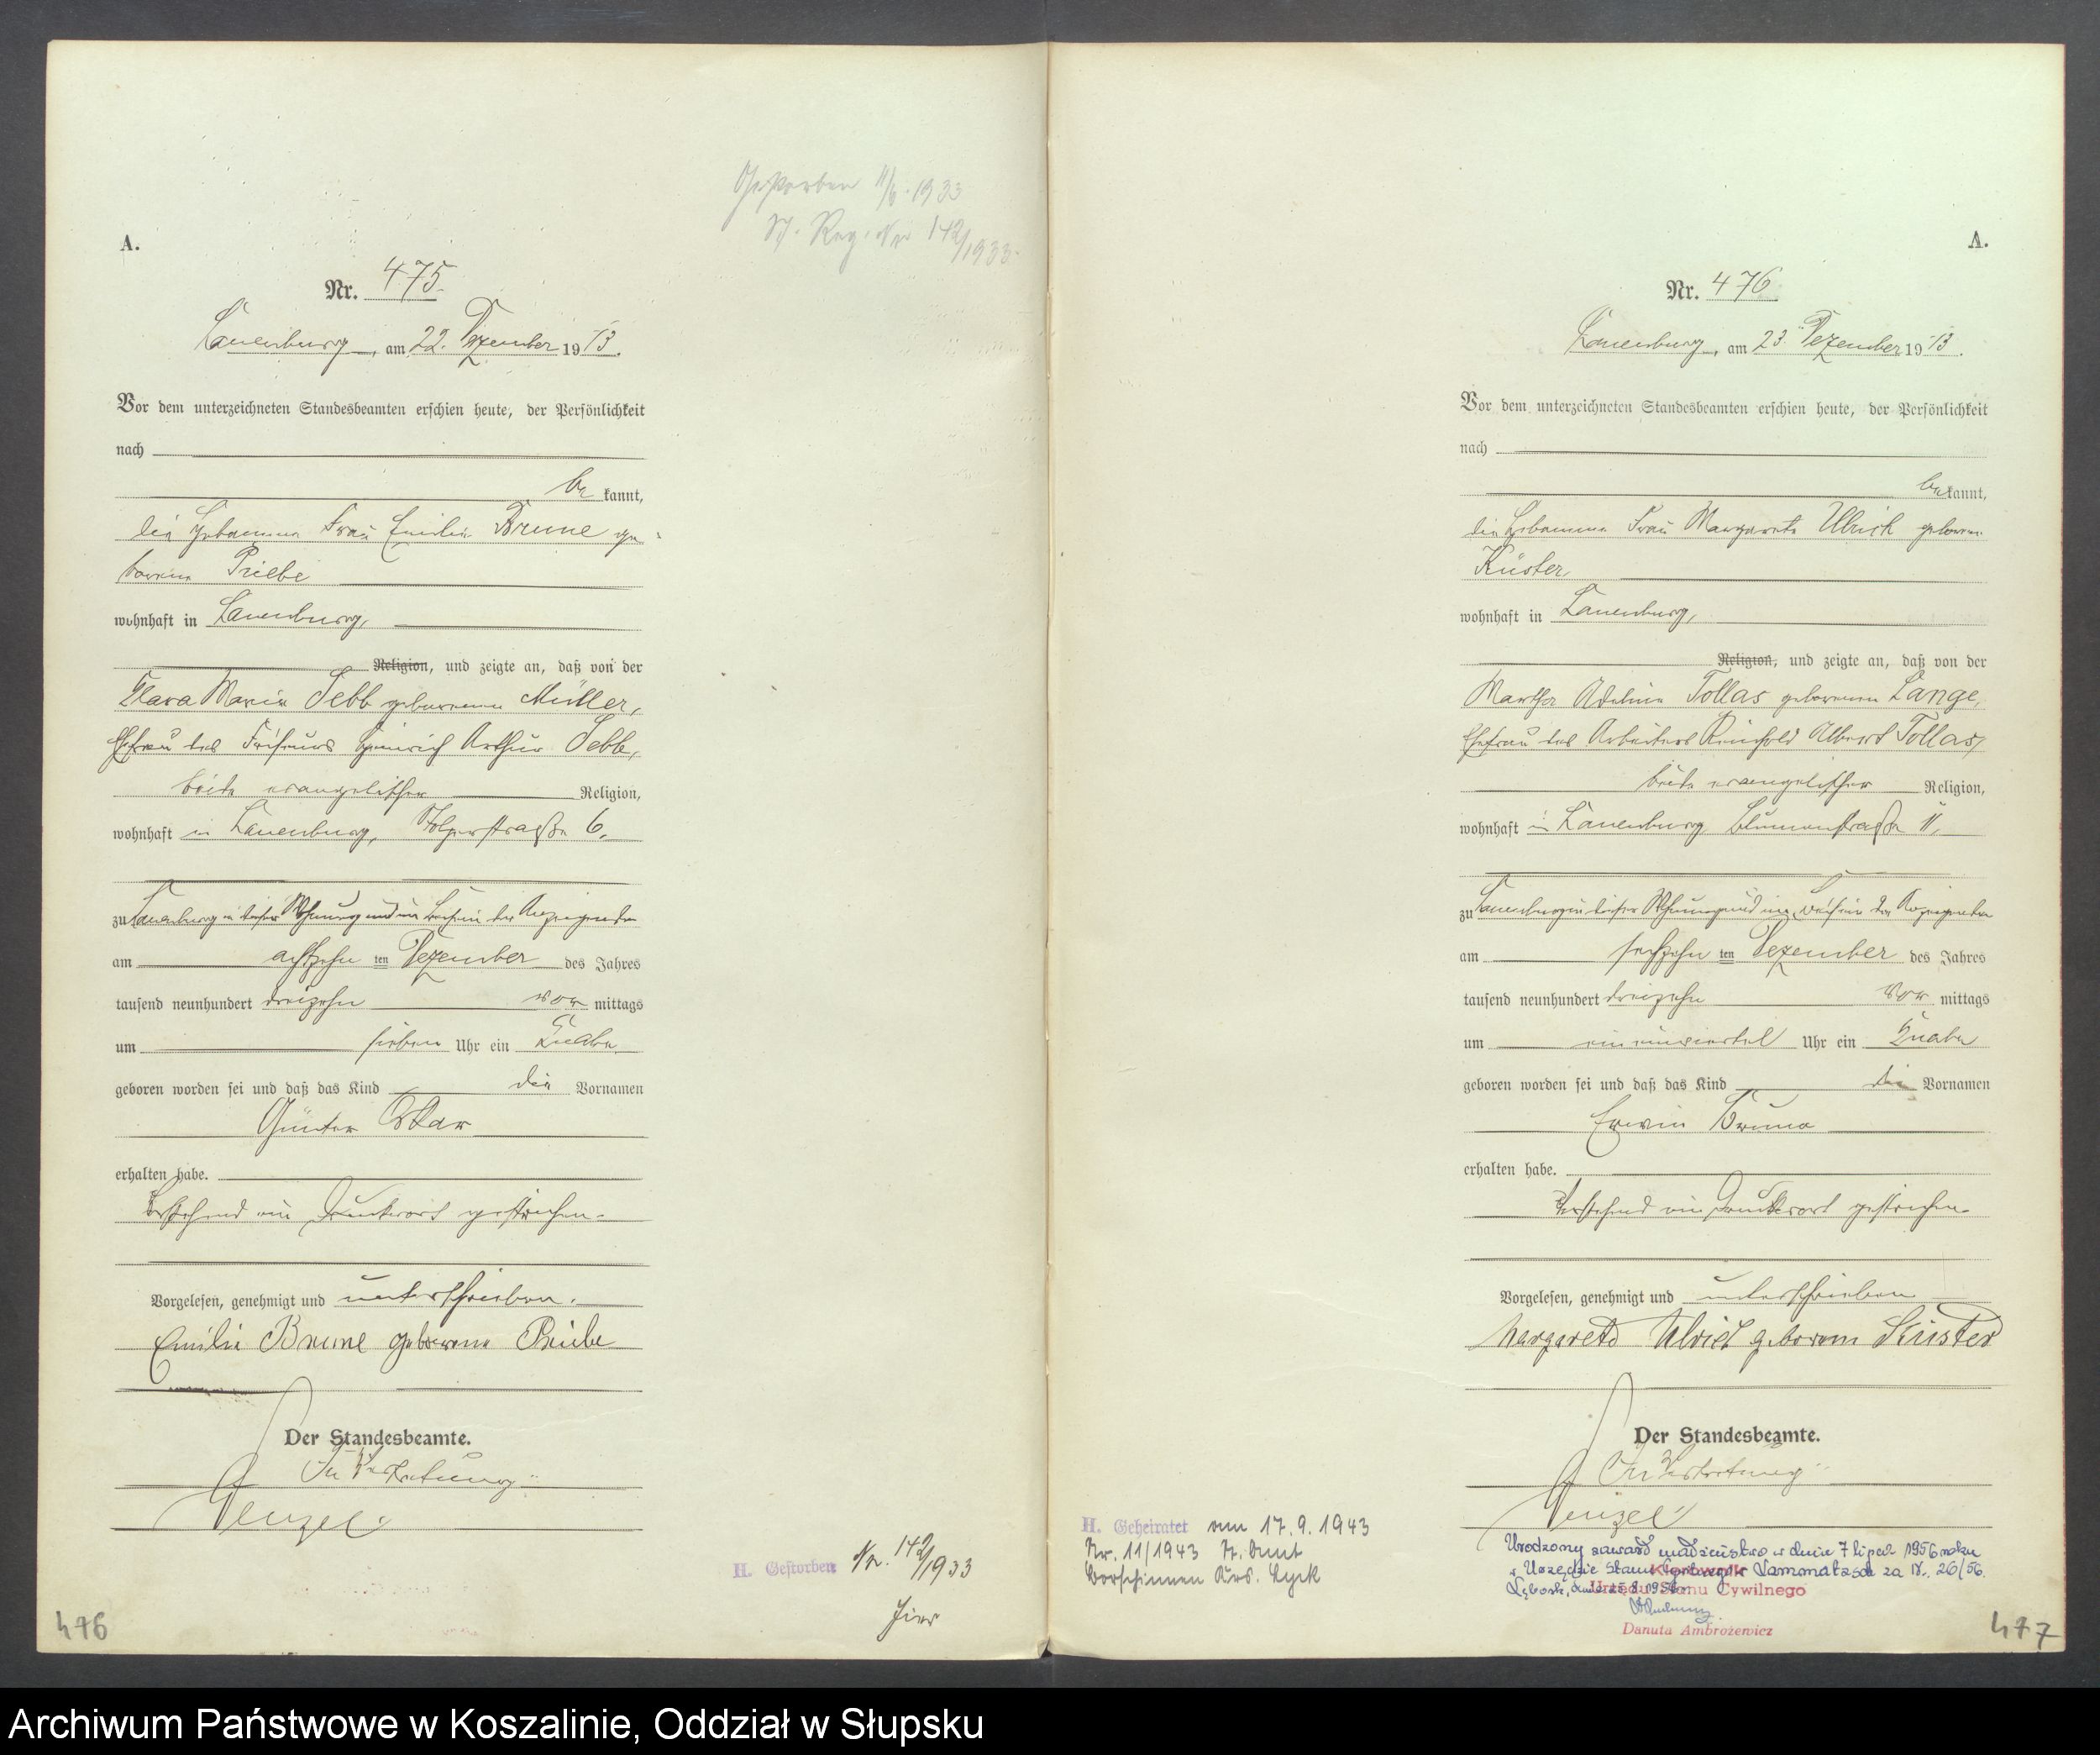 Gestorben 11/6.1933
St. Reg. Nr 142/1933.
A.
Nr. 475.
Lauenburg, am 22. Dezember 1913.
Vor dem unterzeichneten Standesbeamten erschien heute, der Persönlichkeit
nach
be kannt,
die Hebamme Frau Emilie Brune ge-
borene Priebe
wohnhaft in Lauenburg,
Religion, und zeigte an, daß von der
Clara Marie Tebb geborenen Müller,
Ehefrau des Friseurs Heinrich Arthur Tebb,
beide evangelischer Religion,
wohnhaft in Lauenburg, Stolperstraße 6,
zu Lauenburg in dieser Wohnung und im Beisein der Anzeigenden
am achtzehn ten Dezember des Jahres
tausend neunhundert dreizehn vor mittags
um sieben Uhr ein Knabe
geboren worden sei und daß das Kind die Vornamen
Günter Oskar
erhalten habe.
Vorstehend ein Druckwort gestrichen.
Vorgelesen, genehmigt und unterschrieben.
Emilie Brune geborene Priebe
Der Standesbeamte.
In Vertretung:
Wenzel
H. Gestorben Nr. 142/1933
hier
476
A.
Nr. 476
Lauenburg, am 23. Dezember 1913.
Vor dem unterzeichneten Standesbeamten erschien heute, der Persönlichkeit
nach
bekannt,
die Hebamme Frau Margarete Ulrich geborene
Küster
wohnhaft in Lauenburg,
Religion, und zeigte an, daß von der
Martha Adeline Tollas geborenen Lange,
Ehefrau des Arbeiters Reinhold Albert Tollas,
beide evangelischer Religion,
wohnhaft in Lauenburg Blumenstraße 11,
zu Lauenburg in dieser Wohnung und im Beisein der Anzeigenden
am sechzehn ten Dezember des Jahres
tausend neunhundert dreizehn vor mittags
um ein einviertel Uhr ein Knabe
geboren worden sei und daß das Kind die Vornamen
Erwin Bruno
erhalten habe.
Vorstehend ein Druckwort gestrichen.
Vorgelesen, genehmigt und unterschrieben
Margarete Ulrich geborene Küster
Der Standesbeamte.
In Vertretung:
Wenzel
H. Geheiratet am 17.9.1943
Nr. 11/1943 St. Amt
Borschimmen Krs. Lyck
Urodzony zawarł małżeństwo w dniu 7 lipca 1956 roku
w Urzędzie Stanu Cywilnego za Nr. 26/56.
Kierownik
Urzędu Stanu Cywilnego
Danuta Ambrożewicz
477
Archiwum Państwowe w Koszalinie, Oddział w Słupsku